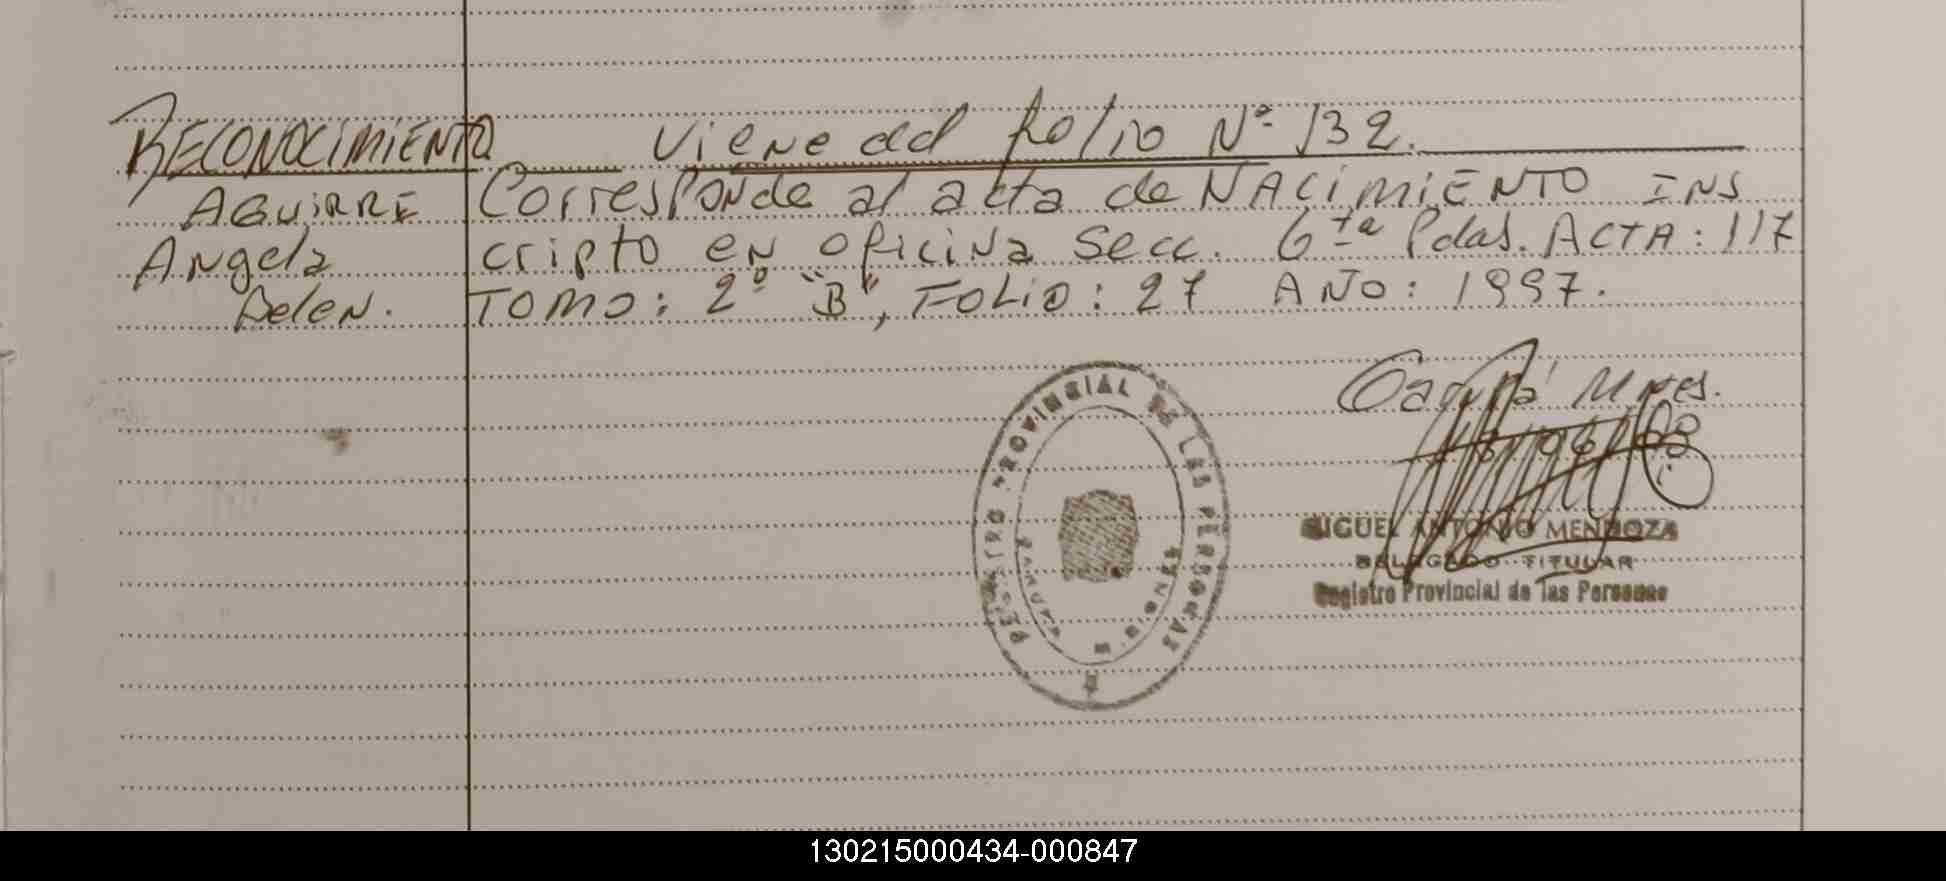 RECONOCIMIENTO Viene del folio Nº 132.
AGUIRRE Corresponde al acta de NACIMIENTO INS
Angela cripto en oficina Secc. 6ta Pdas. ACTA: 117
Belen. TOMO: 2º "B", FOLIO: 27 AÑO: 1997.
REGISTRO PROVINCIAL DE LAS PERSONAS
MIGUEL ANTONIO MENDOZA
DELEGADO TITULAR
Registro Provincial de las Personas
130215000434-000847